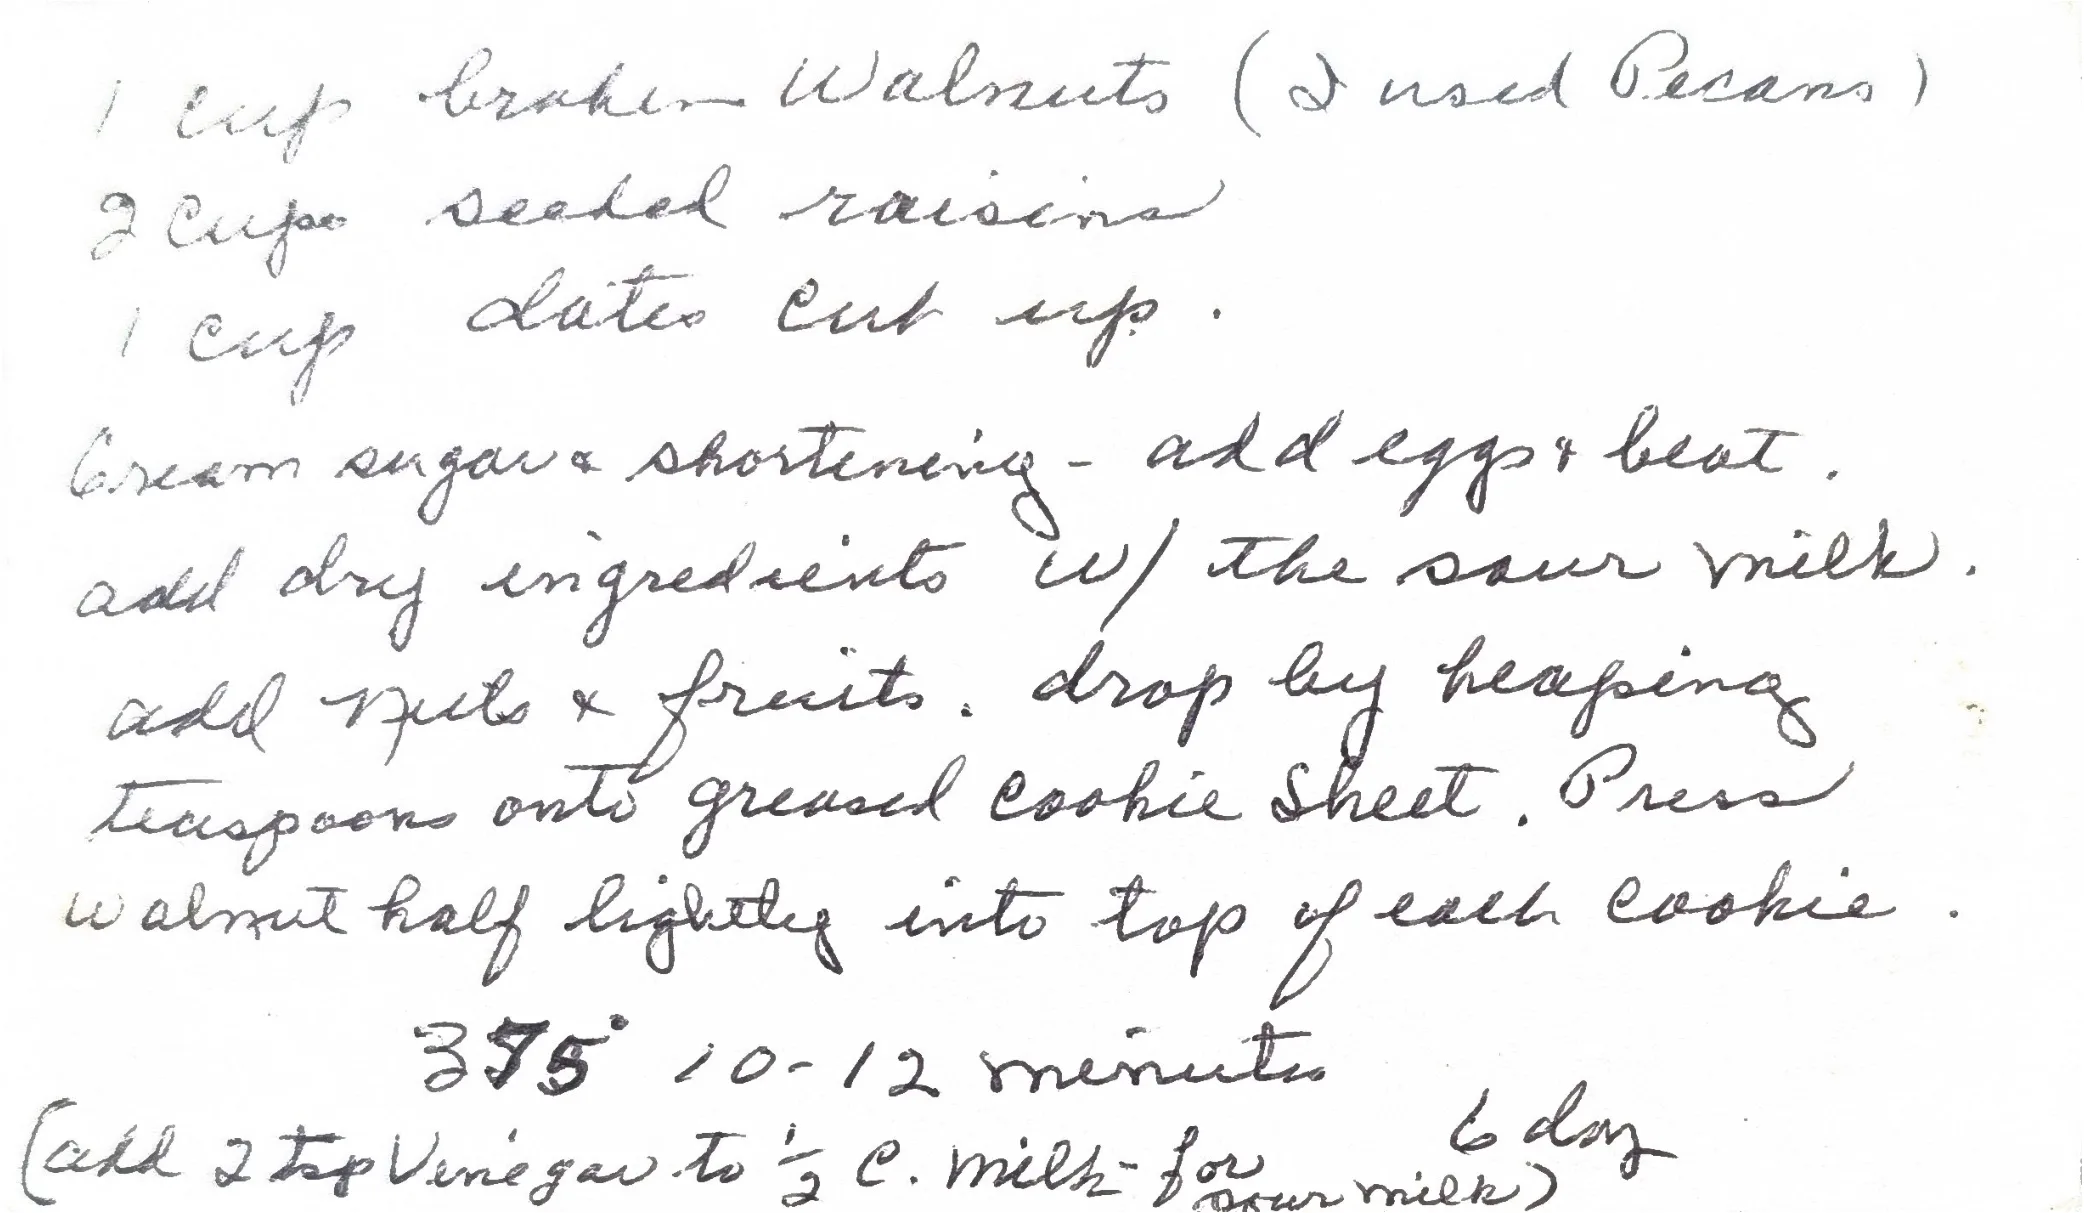 1 cup broken Walnuts (I used Pecans)
2 cups seeded raisins
1 cup dates cut up.
Cream sugar & shortening - add eggs & beat.
add dry ingredients w/ the sour milk.
add nuts & fruits. drop by heaping
teaspoons onto greased cookie Sheet. Press
walnut half lightly into top of each cookie.
375° 10-12 minutes
6 doz
(add 2 tsp Vinegar to ½ C. milk - for
sour milk)